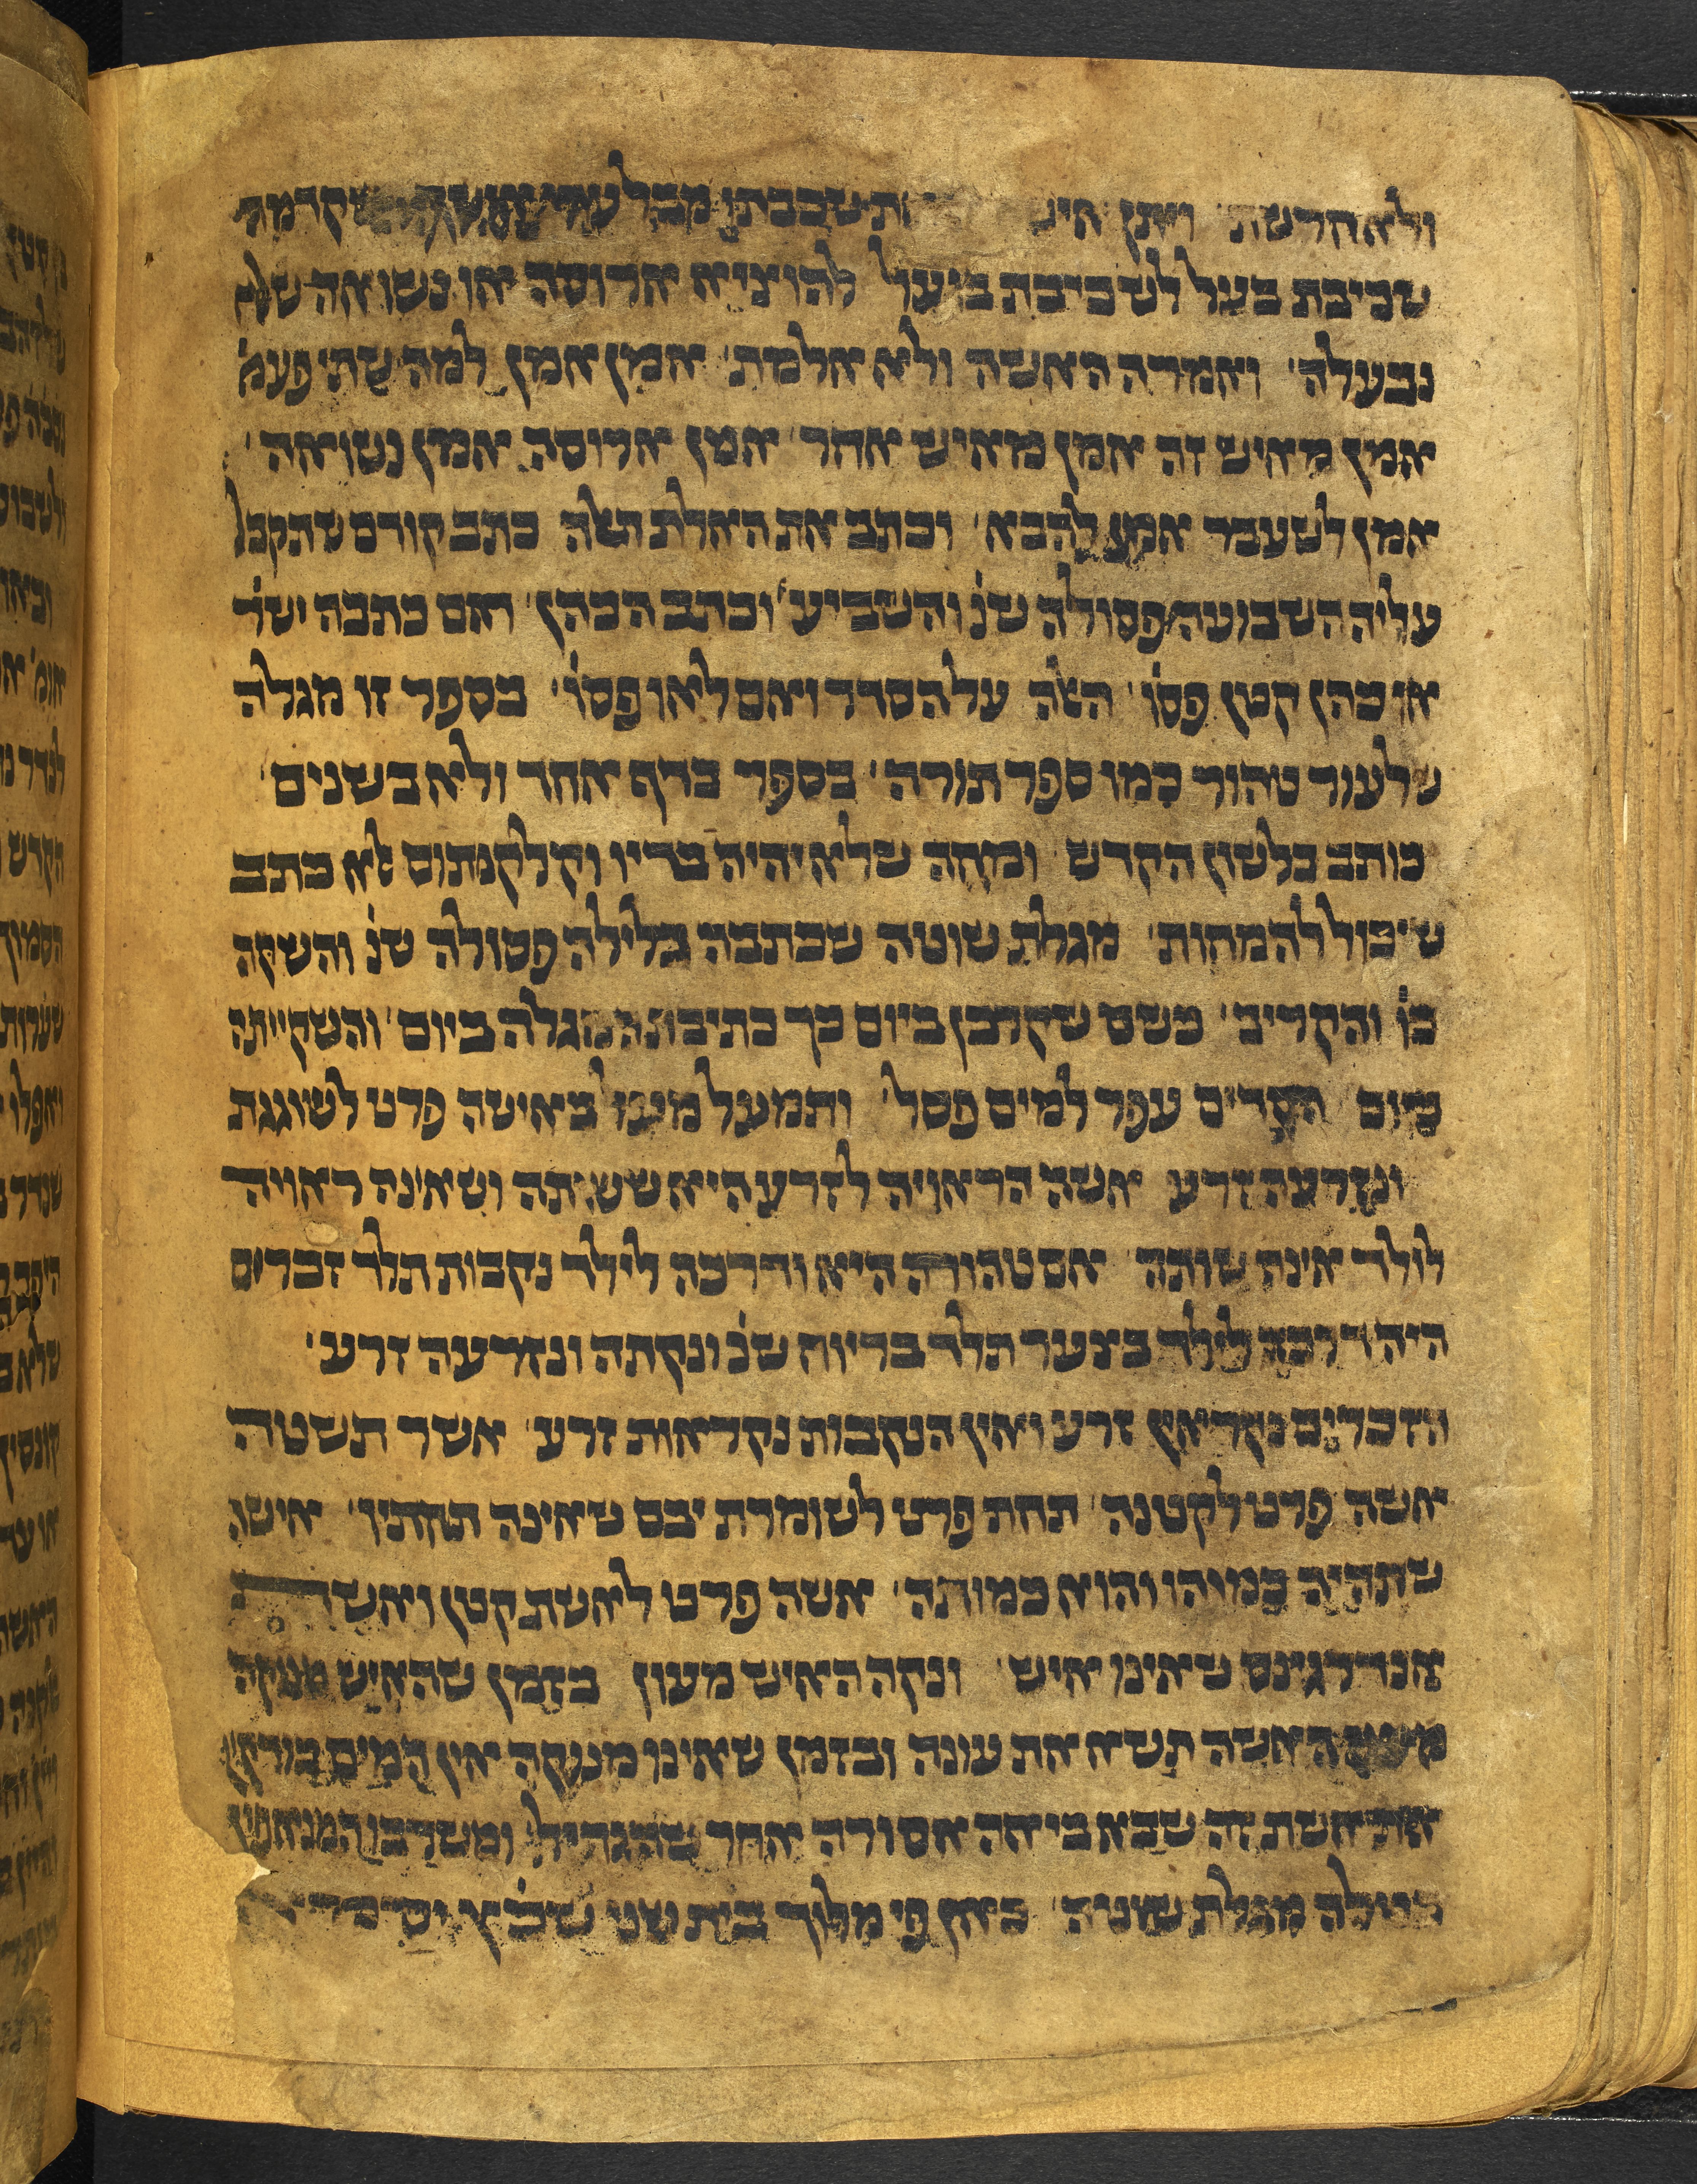 ולא חרשת ויתן איש את שכבתו מבל עדי אישך שקדמה
שכיבת בעל לשכיבת בועל להוציא ארוסה או נשואה שלא
נבעלה׳ ואמרה האשה ולא אלמת׳ אמן אמן למה שתי פעמ׳
אמן מאיש זה אמן מאיש אחר׳ אמן ארוסה אמן נשואה׳
אמן לשעבר אמן להבא׳ וכתב את האלת האלה כתב קודם שתקבל
עליה השבועה פסולה שנ׳ והשביע׳ וכתב הכהן׳ ואם כתבה ישר׳
או כהן קטן פסו׳׳ האלה על הסדר ואם לאו פסו׳׳ בספר זו מגלה
שלעור טהור כמו ספר תורה׳ בספר בדף אחד ולא בשנים׳
כותב בלשון הקדש ומחה שלא יהיה בדיו וקלקנתום לא כתב
שיכול להמחות׳ מגלת שוטה שכתבה בלילה פסולה שנ׳ והשקה
כו׳ והקריב׳ כשם שקרבן ביום כך כתיבת המגלה ביום׳ והשקייתה
מיום הקדים עפר למים פסל׳ ותמעל מעל באישה פרט לשוגגת
ונזרעה זרע אשה הראויה לזרע היא ששותה ושאינה ראויה
לולד אינה שותה אם טהורה היא ודרכה לילד נקבות תלד זכרים
היה דרכה לילד בצער תלד בריוח שנ׳ ונקתה ונזרעה זרע׳
הזכרים נקראין זרע ואין הנקבות נקראות זרע׳ אשר תשטה
אשה פרט לקטנה׳ תחת פרט לשומרת יבם שאינה תחתיו׳ אישה
שתהיה כמוהו והוא כמותה׳ אשה פרט לאשת קטן ואשת
אנדרגינס שאינו איש׳ ונקה האיש מעון בזמן שהאיש מנוקה
מעון האשה תשא את עונה ובזמן שאינו מנוקה אין המים בודקין
את אשתו זה שבא ביאה אסורה אחר שהגדיל׳ ומשרבו המנאפין
בטלה מגלת שוטה׳